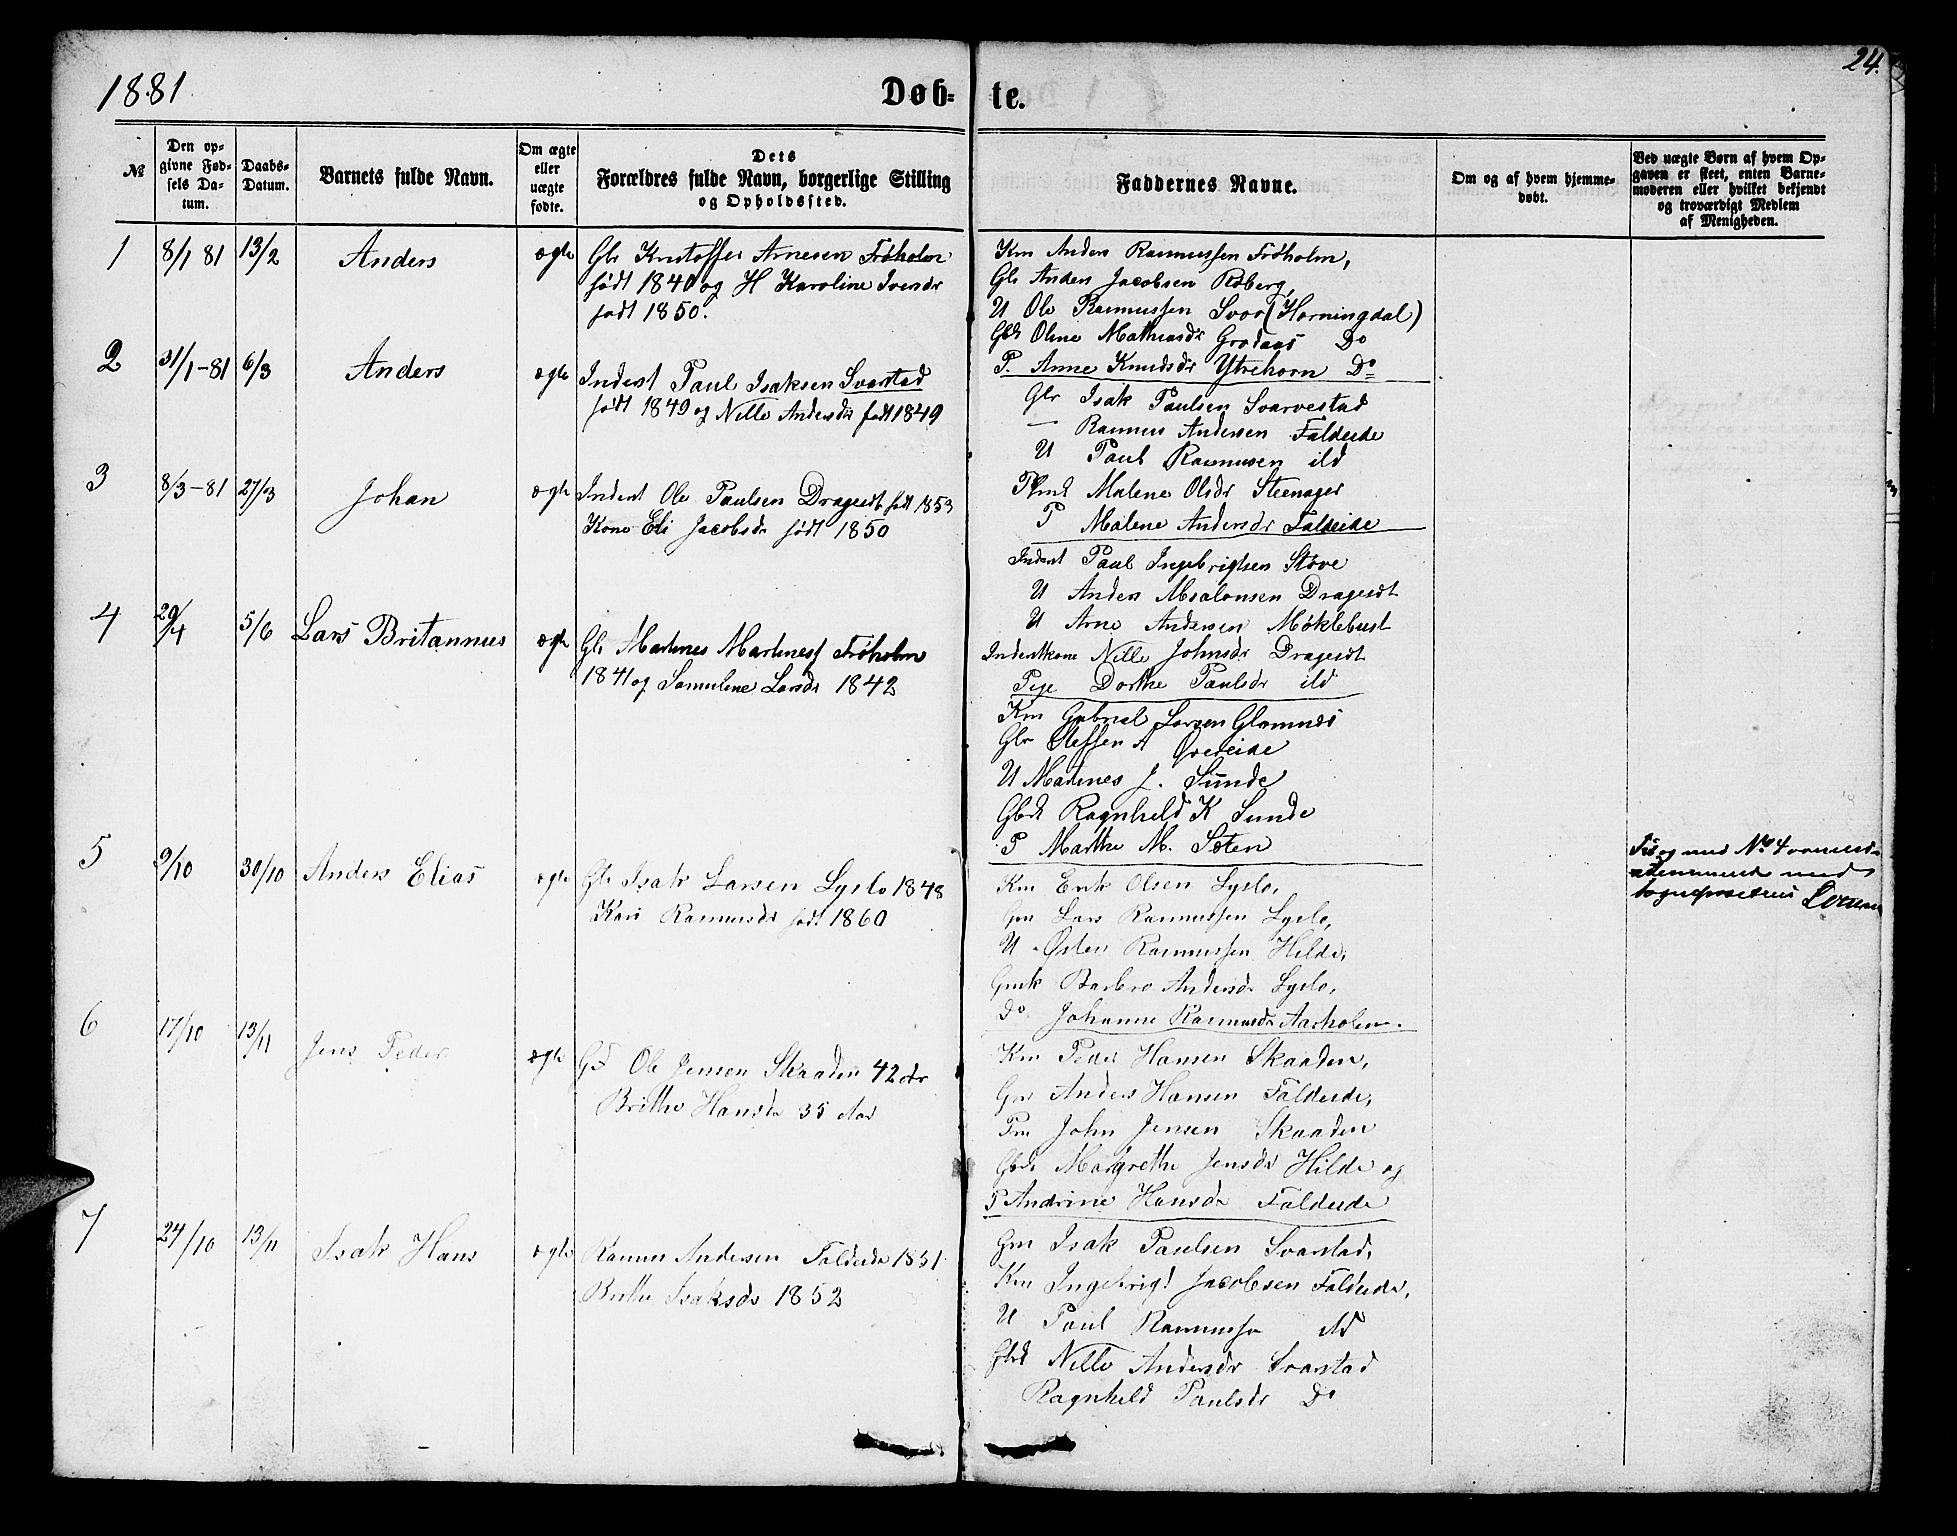 1881
Døb-
te.
24.
№
Den op-
givne Fød-
sels Da-
tum.
Daabs-
Datum.
Barnets fulde Navn.
Om ægte
eller
uægte
fødte.
Dets
Forældres fulde Navn, borgerlige Stilling
og Opholdssted.
Faddernes Navne.
Om og af hvem hjemme-
døbt.
Ved uægte Børn af hvem Op-
gaven er skeet, enten Barne-
moderen eller hvilket bekjendt
og troværdigt Medlem
af Menigheden.
1
8/1 81
13/2
Anders
ægte
Gbr Kristoffer Arnesen Frøholm
født 1840 og H Karoline Iversdr
født 1850.
Km Anders Rasmussen Frøholm,
Gbr Anders Jacobsen Roberg,
U Ole Rasmussen Svor (Horningdal)
Gbd Oline Mathiasdr Grodaas Do
P. Anne Knudsdr Ytrehorn Do
2
31/1-81
6/3
Anders
ægte
Inderst Paul Isaksen Svarstad
født 1849 og Nille Andersdr født 1849
Gbr Isak Paulsen Svarvestad
— Rasmus Andersen Faldeide
U Paul Rasmusen ild
Malene Olsdr Steenager
P Malene Andersdr Faldeide
3
8/3-81
27/3
Johan
ægte
Inderst Ole Paulsen Drageidt født 1853
Kone Eli Jacobsdr født 1850
Inderst Paul Ingebrigtsen Støve
U Anders Absalonsen Drageidt
U Arne Andersen Møklebust
Inderstkone Nille Johnsdr Drageidt
Pige Dorthe Paulsdr ild
4
29/4
5/6
Lars Britannus
ægte
Gbr Martines Martinesen Frøholm
1841 og Samuline Larsdr 1842
Km Gabriel Larsen Glomnes
Gbr Steffen A Øvreeide
U Martines J. Sunde
Gbd Ragnhild K Sunde
P Marthe M. Sæten
5
9/10
30/10
Anders Elias
ægte
Gbr Isak Larsen Lyslo 1848
Kari Rasmusdr født 1860
Til og med No 4
med
Km Erik Olsen Lyslo,
Gm Lars Rasmussen Lyslo,
U Østen Rasmussen Hilde,
Gmk Barbro Andersdr Lyslo,
Do Johanne Rasmusdr Aarholen.
6
17/10
13/11
Jens Peder
ægte
Ole Jensen Skaaden 42 Aar
Brithe Hansdr 35 Aar
Km Peder Hansen Skaaden,
Gm Anders Hansen Faldeide,
Pm John Jensen Skaaden
Gbd Margrethe Jensdr Hilde og
P Andrine Hansdr Faldeide
7
24/10
13/11
Isak Hans
ægte
Rasmus Andersen Faldeide 1851
Brithe Isaksdr 1852
Gm Isak Paulsen Svarstad,
Km Ingebrigt Jacobsen Faldeide,
U Paul Rasmussen ild
Gbd Nille Andersdr Svarstad
Ragnhild Paulsdr Do